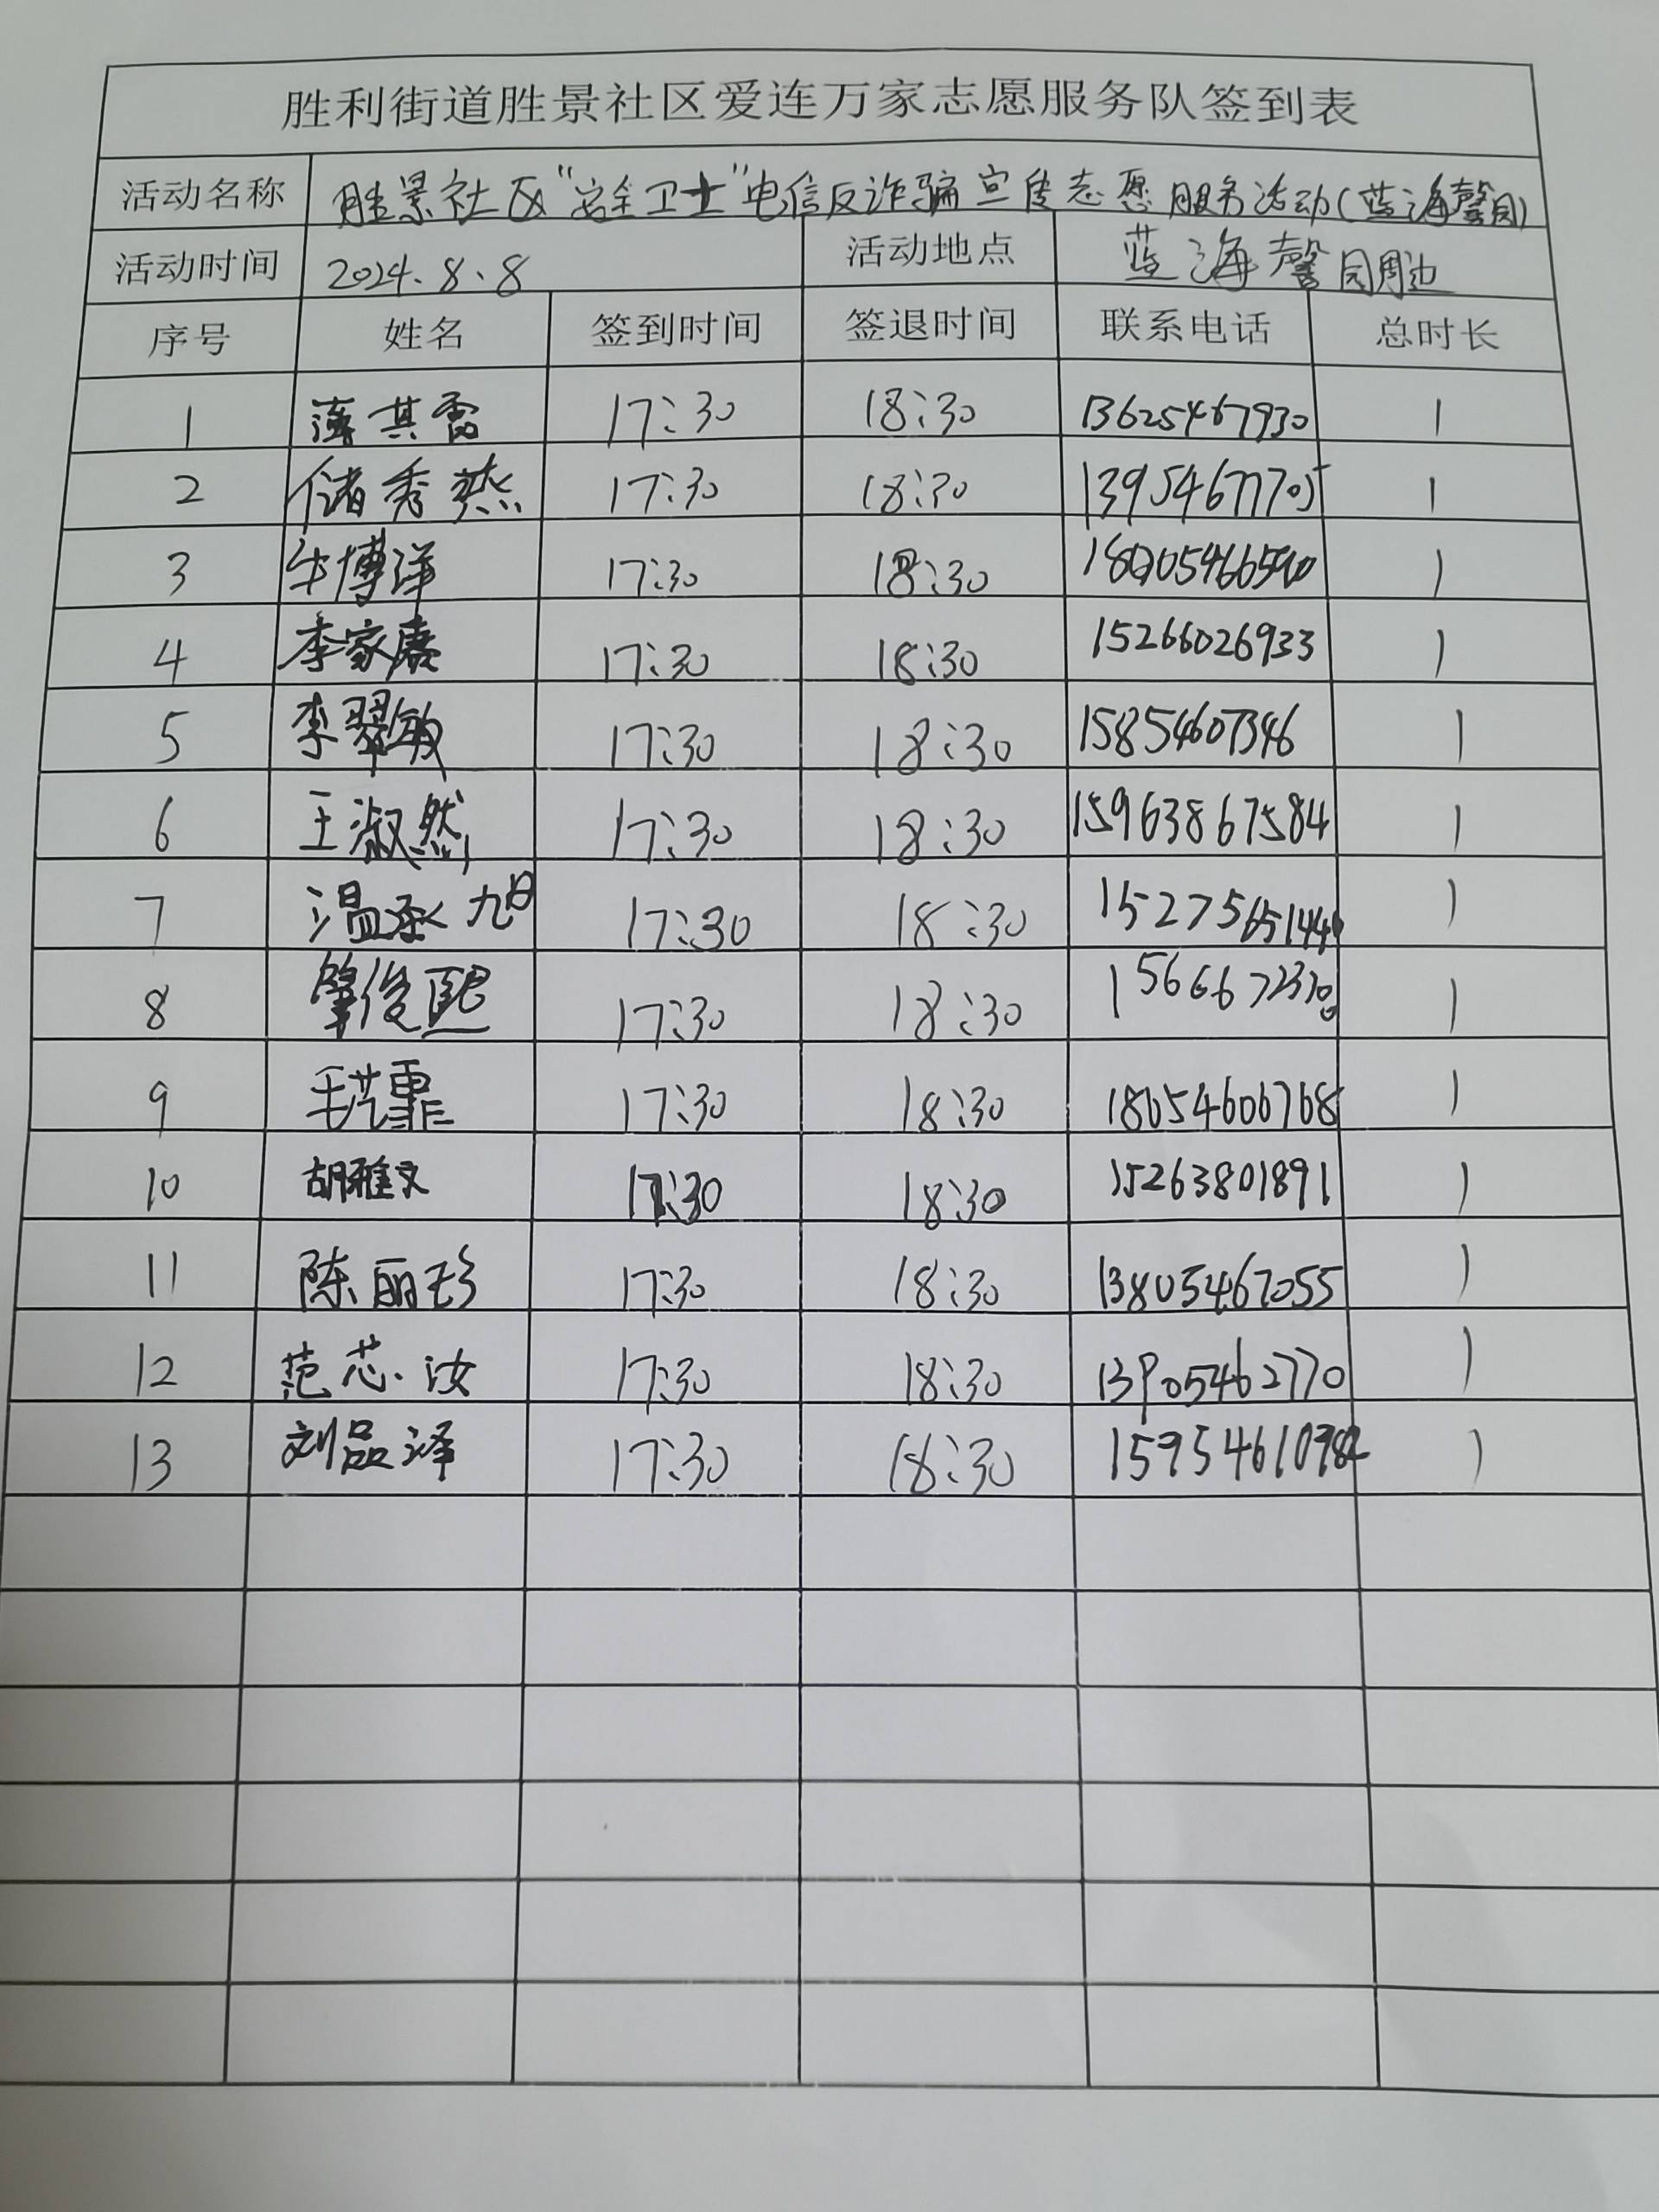 胜利街道胜景社区爱连万家志愿服务队签到表
活动名称 胜景社区“安全卫士”电信反诈骗宣传志愿服务活动(蓝海馨园)
活动时间 2024.8.8 活动地点 蓝海馨园周边
序号 姓名 签到时间 签退时间 联系电话 总时长
1 薄其雷 17:30 18:30 13625467930 1
2 储秀燕 17:30 18:30 13954677705 1
3 牛博洋 17:30 18:30 1
4 李家康 17:30 18:30 15266026933 1
5 李翠敏 17:30 18:30 15854607346 1
6 王淑然 17:30 18:30 15963867584 1
7 温承旭 17:30 18:30 1
8 肇俊熙 17:30 18:30 15666723700 1
9 毛艺霏 17:30 18:30 18054606768 1
10 胡雅文 17:30 18:30 15263801891 1
11 陈丽珍 17:30 18:30 13805467055 1
12 范芯汝 17:30 18:30 13905462770 1
13 刘品泽 17:30 18:30 1